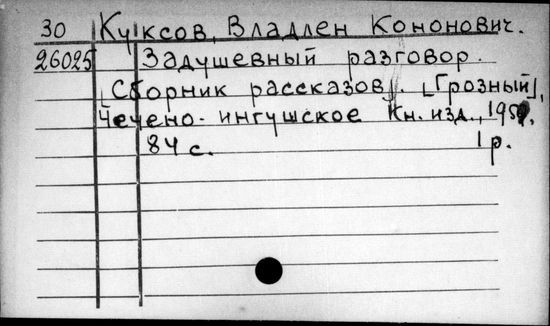 30 Куксов, Владлен Кононович.
26025 Задушевный разговор.
[Сборник рассказов]. [Грозный],
Чечено-ингушское Кн. изд.,
84 с. 1 р.